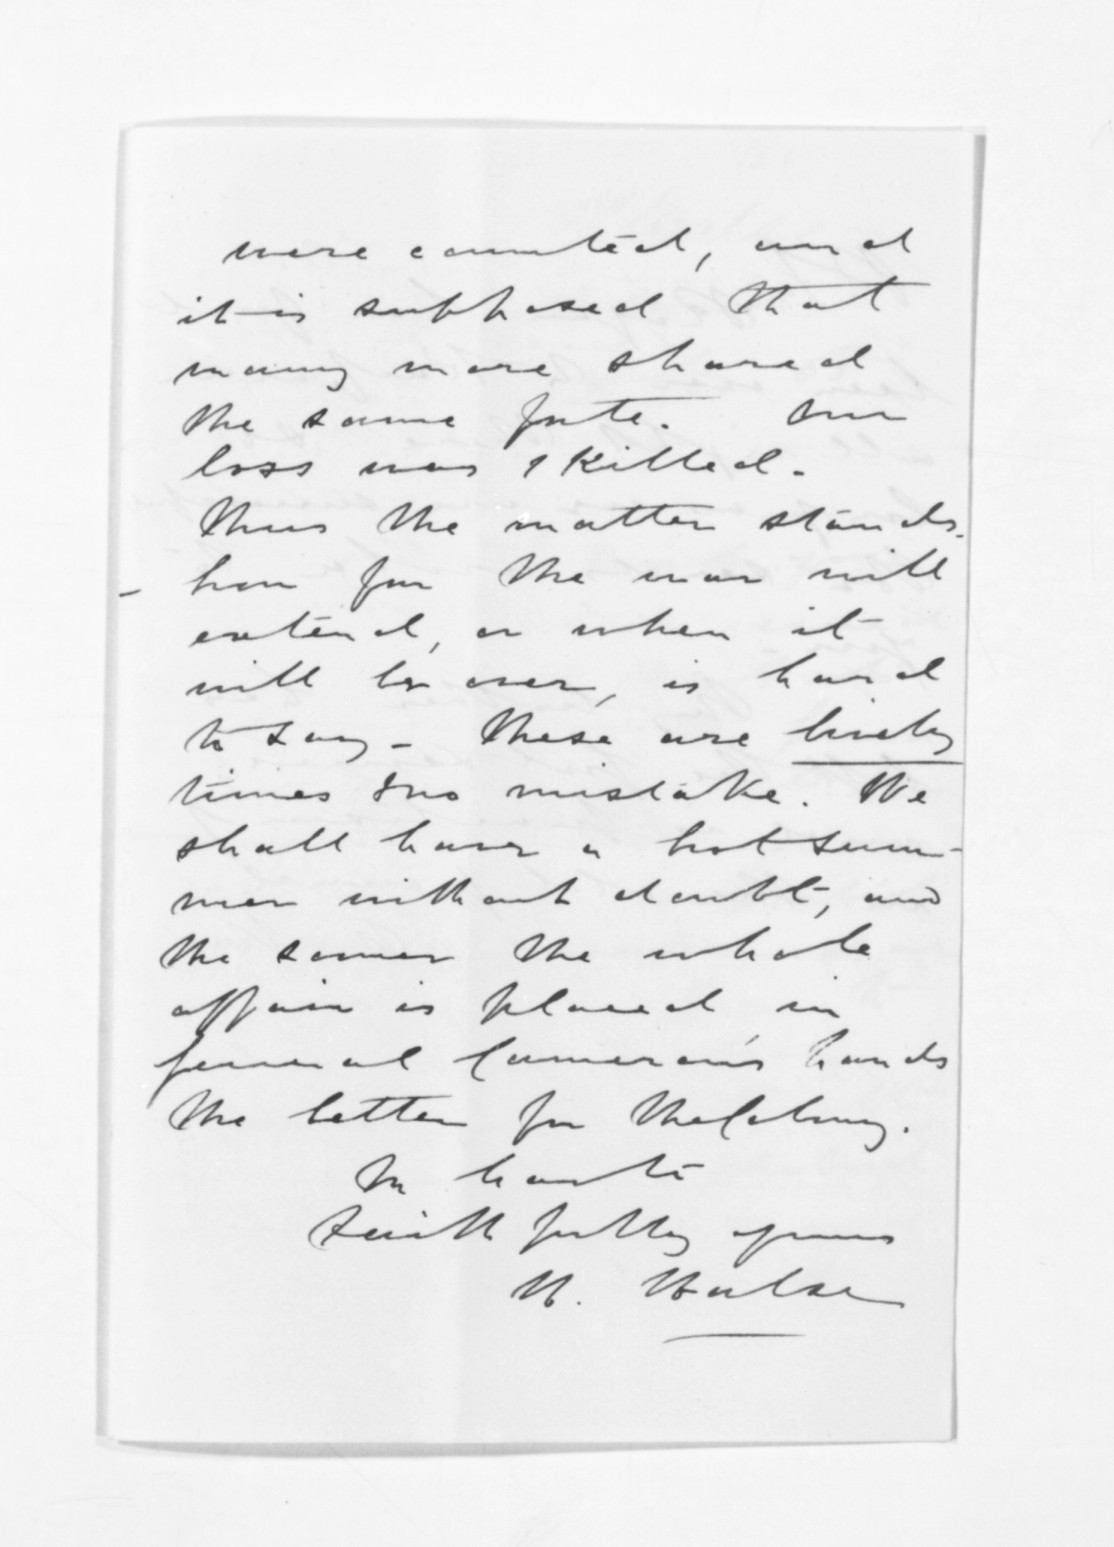 were counted, and
it is supposed that
many more shared
the same fate. Our
loss was 1 killed.
Thus the matter stands.
- how far the war will
extend, or when it
will be over, is hard
to say - These are lively
times & no mistake. We
shall have a hot sum-
mer without doubt, and
the sooner the whole
affair is placed in
General Cameron's hands
the better for the Colony.
In haste
Faithfully yours
H. Halse